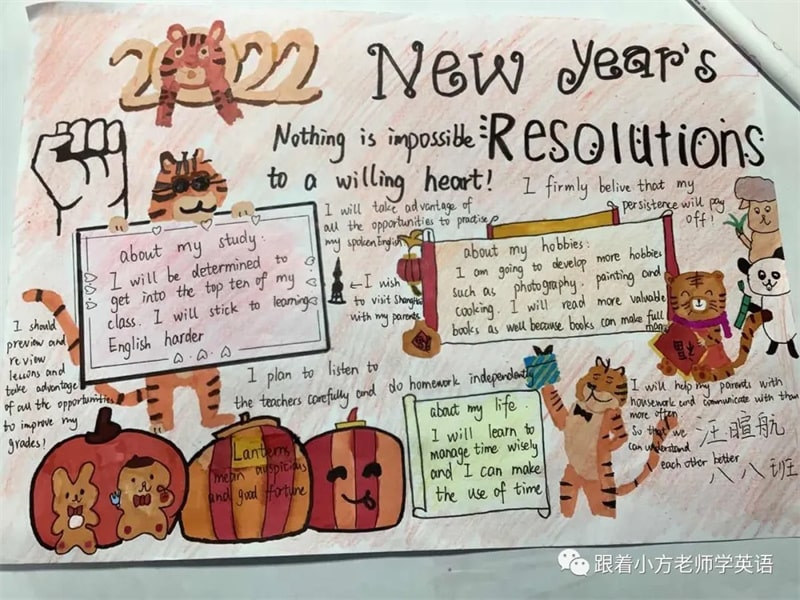 2022
New Year's
Resolutions
Nothing is impossible
to a willing heart!
I firmly belive that my
persistence will pay
off!
about my study:
I will be determined to
get into the top ten of my
class. I will stick to learning
English harder
I will take advantage of
all the opportunities to practise
my spoken English
I wish
to visit Shanghai
with my parents
about my hobbies:
I am going to develop more hobbies
such as photography. painting and
cooking. I will read more valuable
books as well because books can make full
man.
I should
preview and
review
lessons and
take advantage
of all the opportunities
to improve my
grades!
I plan to listen to
the teachers carefully and do homework independently
Lanterns
mean auspicious
and good fortune
about my life
I will learn to
manage time wisely
and I can make
the use of time
I will help my parents with
housework and communicate with them
more often
So that we
can understand
each other better
汪暄航
八八班
跟着小方老师学英语